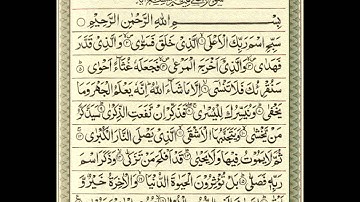 بِسْمِ اللهِ الرَّحْمٰنِ الرَّحِيْمِ
سَبِّحِ اسْمَ رَبِّكَ الْاَعْلَى الَّذِيْ خَلَقَ فَسَوّٰى وَالَّذِيْ قَدَّرَ
فَهَدٰى وَالَّذِيْٓ اَخْرَجَ الْمَرْعٰى فَجَعَلَهٗ غُثَآءً اَحْوٰى
سَنُقْرِئُكَ فَلَا تَنْسٰٓى اِلَّا مَا شَآءَ اللهُ اِنَّهٗ يَعْلَمُ الْجَهْرَ وَمَا
يَخْفٰى وَنُيَسِّرُكَ لِلْيُسْرٰى فَذَكِّرْ اِنْ نَّفَعَتِ الذِّكْرٰى سَيَذَّكَّرُ
مَنْ يَّخْشٰى وَيَتَجَنَّبُهَا الْاَشْقَى الَّذِيْ يَصْلَى النَّارَ الْكُبْرٰى
ثُمَّ لَا يَمُوْتُ فِيْهَا وَلَا يَحْيٰى قَدْ اَفْلَحَ مَنْ تَزَكّٰى وَذَكَرَ اسْمَ
رَبِّهٖ فَصَلّٰى بَلْ تُؤْثِرُوْنَ الْحَيٰوةَ الدُّنْيَا وَالْاٰخِرَةُ خَيْرٌ وَّ